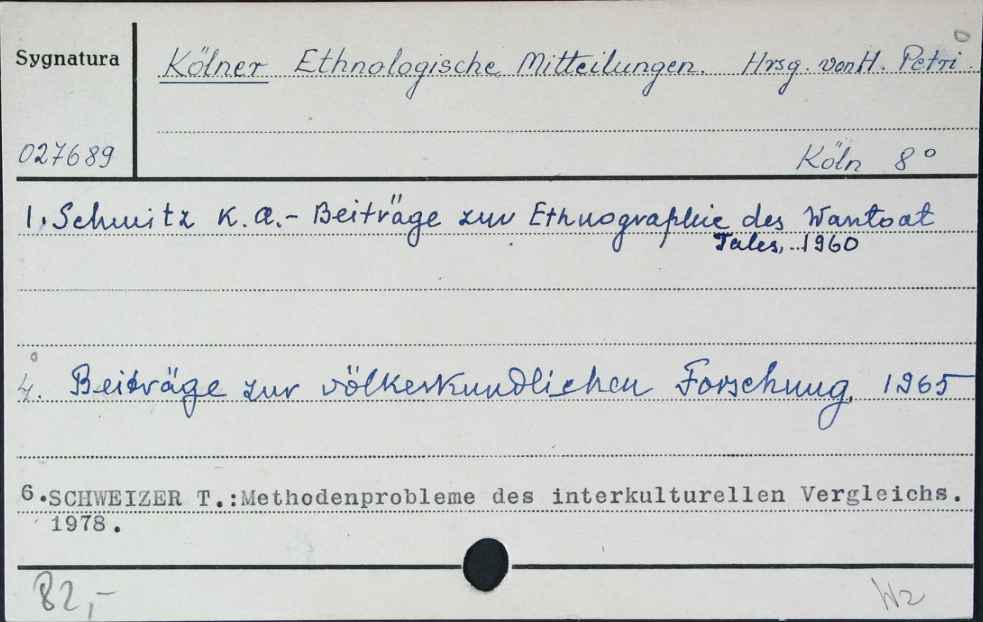 Sygnatura
Kölner Ethnologische Mitteilungen. Hrsg. von H. Petri.
027689
Köln 8°
1. Schmitz K. A. - Beiträge zur Ethnographie des Wantoat
Tales, 1960
4. Beiträge zur völkerkundlichen Forschung, 1965
6. SCHWEIZER T.: Methodenprobleme des interkulturellen Vergleichs.
1978.
82,-
Wz